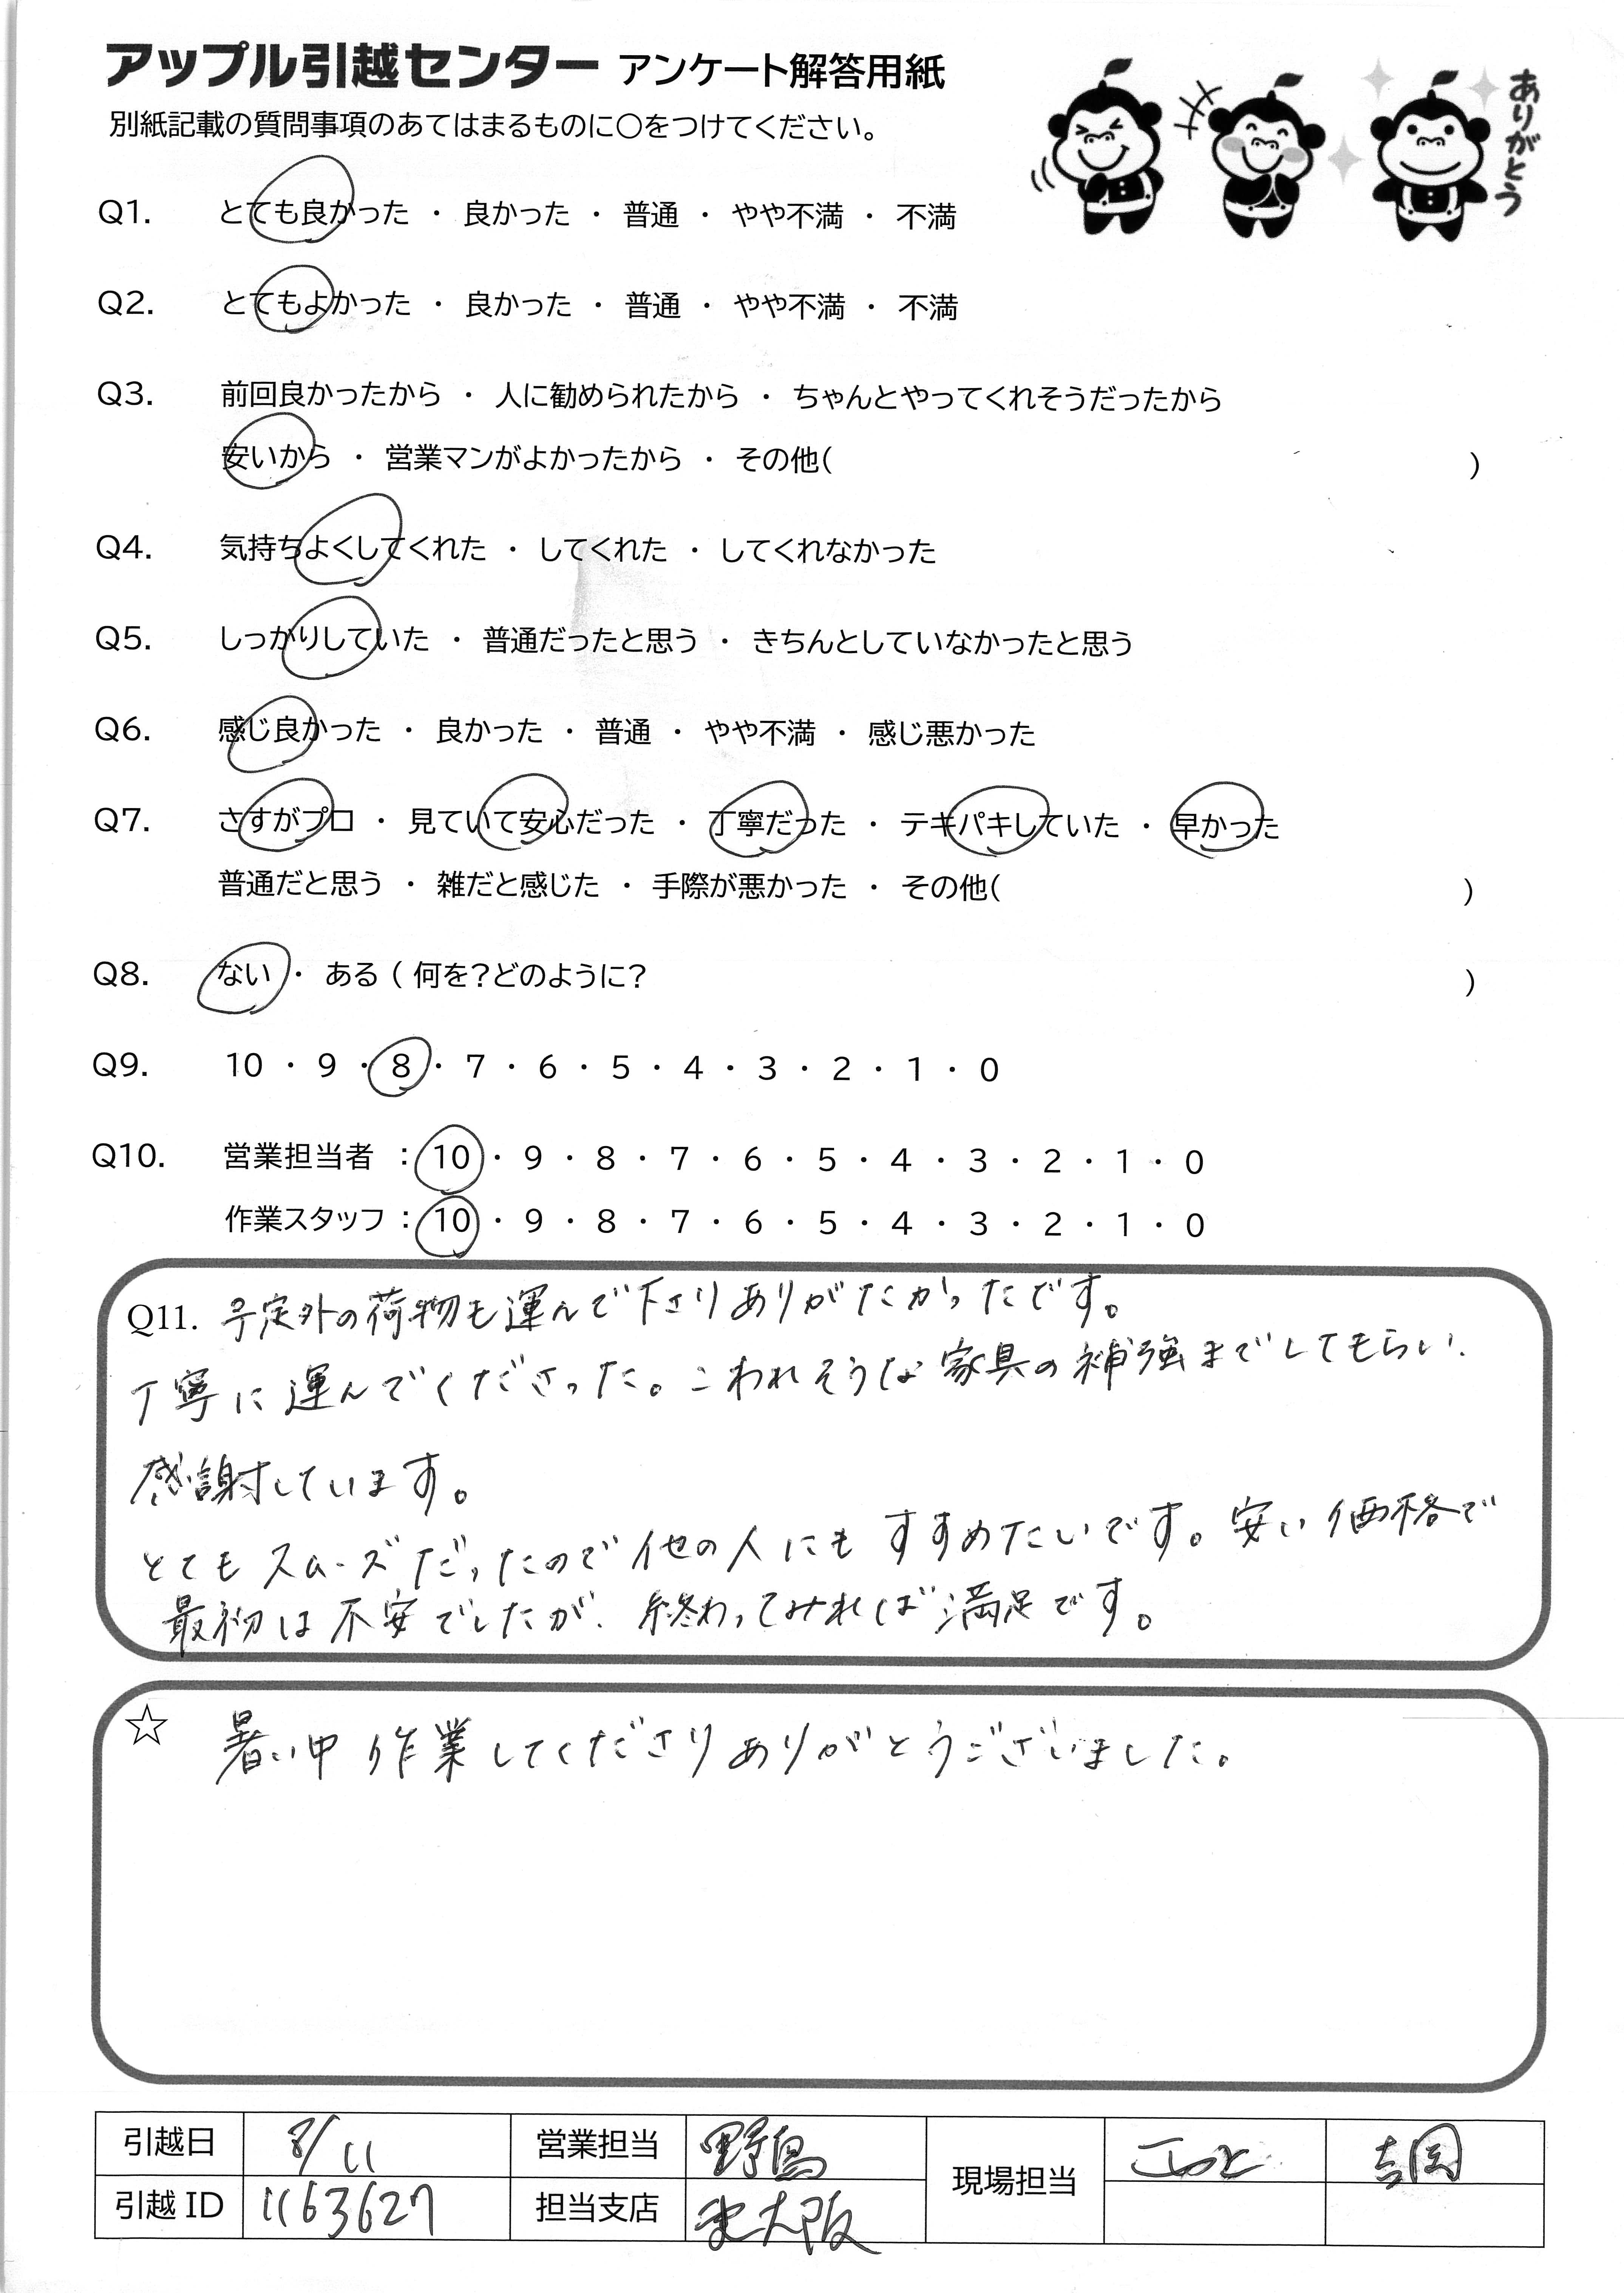 アップル引越センター アンケート解答用紙
別紙記載の質問事項のあてはまるものに○をつけてください。
ありがとう
Q1. とても良かった ・ 良かった ・ 普通 ・ やや不満 ・ 不満
Q2. とてもよかった ・ 良かった ・ 普通 ・ やや不満 ・ 不満
Q3. 前回良かったから ・ 人に勧められたから ・ ちゃんとやってくれそうだったから
安いから ・ 営業マンがよかったから ・ その他( )
Q4. 気持ちよくしてくれた ・ してくれた ・ してくれなかった
Q5. しっかりしていた ・ 普通だったと思う ・ きちんとしていなかったと思う
Q6. 感じ良かった ・ 良かった ・ 普通 ・ やや不満 ・ 感じ悪かった
Q7. さすがプロ ・ 見ていて安心だった ・ 丁寧だった ・ テキパキしていた ・ 早かった
普通だと思う ・ 雑だと感じた ・ 手際が悪かった ・ その他( )
Q8. ない ・ ある ( 何を?どのように? )
Q9. 10 ・ 9 ・ 8 ・ 7 ・ 6 ・ 5 ・ 4 ・ 3 ・ 2 ・ 1 ・ 0
Q10. 営業担当者 : 10 ・ 9 ・ 8 ・ 7 ・ 6 ・ 5 ・ 4 ・ 3 ・ 2 ・ 1 ・ 0
作業スタッフ : 10 ・ 9 ・ 8 ・ 7 ・ 6 ・ 5 ・ 4 ・ 3 ・ 2 ・ 1 ・ 0
Q11. 予定外の荷物も運んで下さりありがたかったです。
丁寧に運んでくださった。こわれそうな家具の補強までしてもらい、
感謝しています。
とてもスムーズだったので他の人にもすすめたいです。安い価格で
最初は不安でしたが、終わってみれば満足です。
☆ 暑い中作業してくださりありがとうございました。
引越日 8/11 営業担当 野島 現場担当 吉岡
引越ID 1163627 担当支店 北大阪